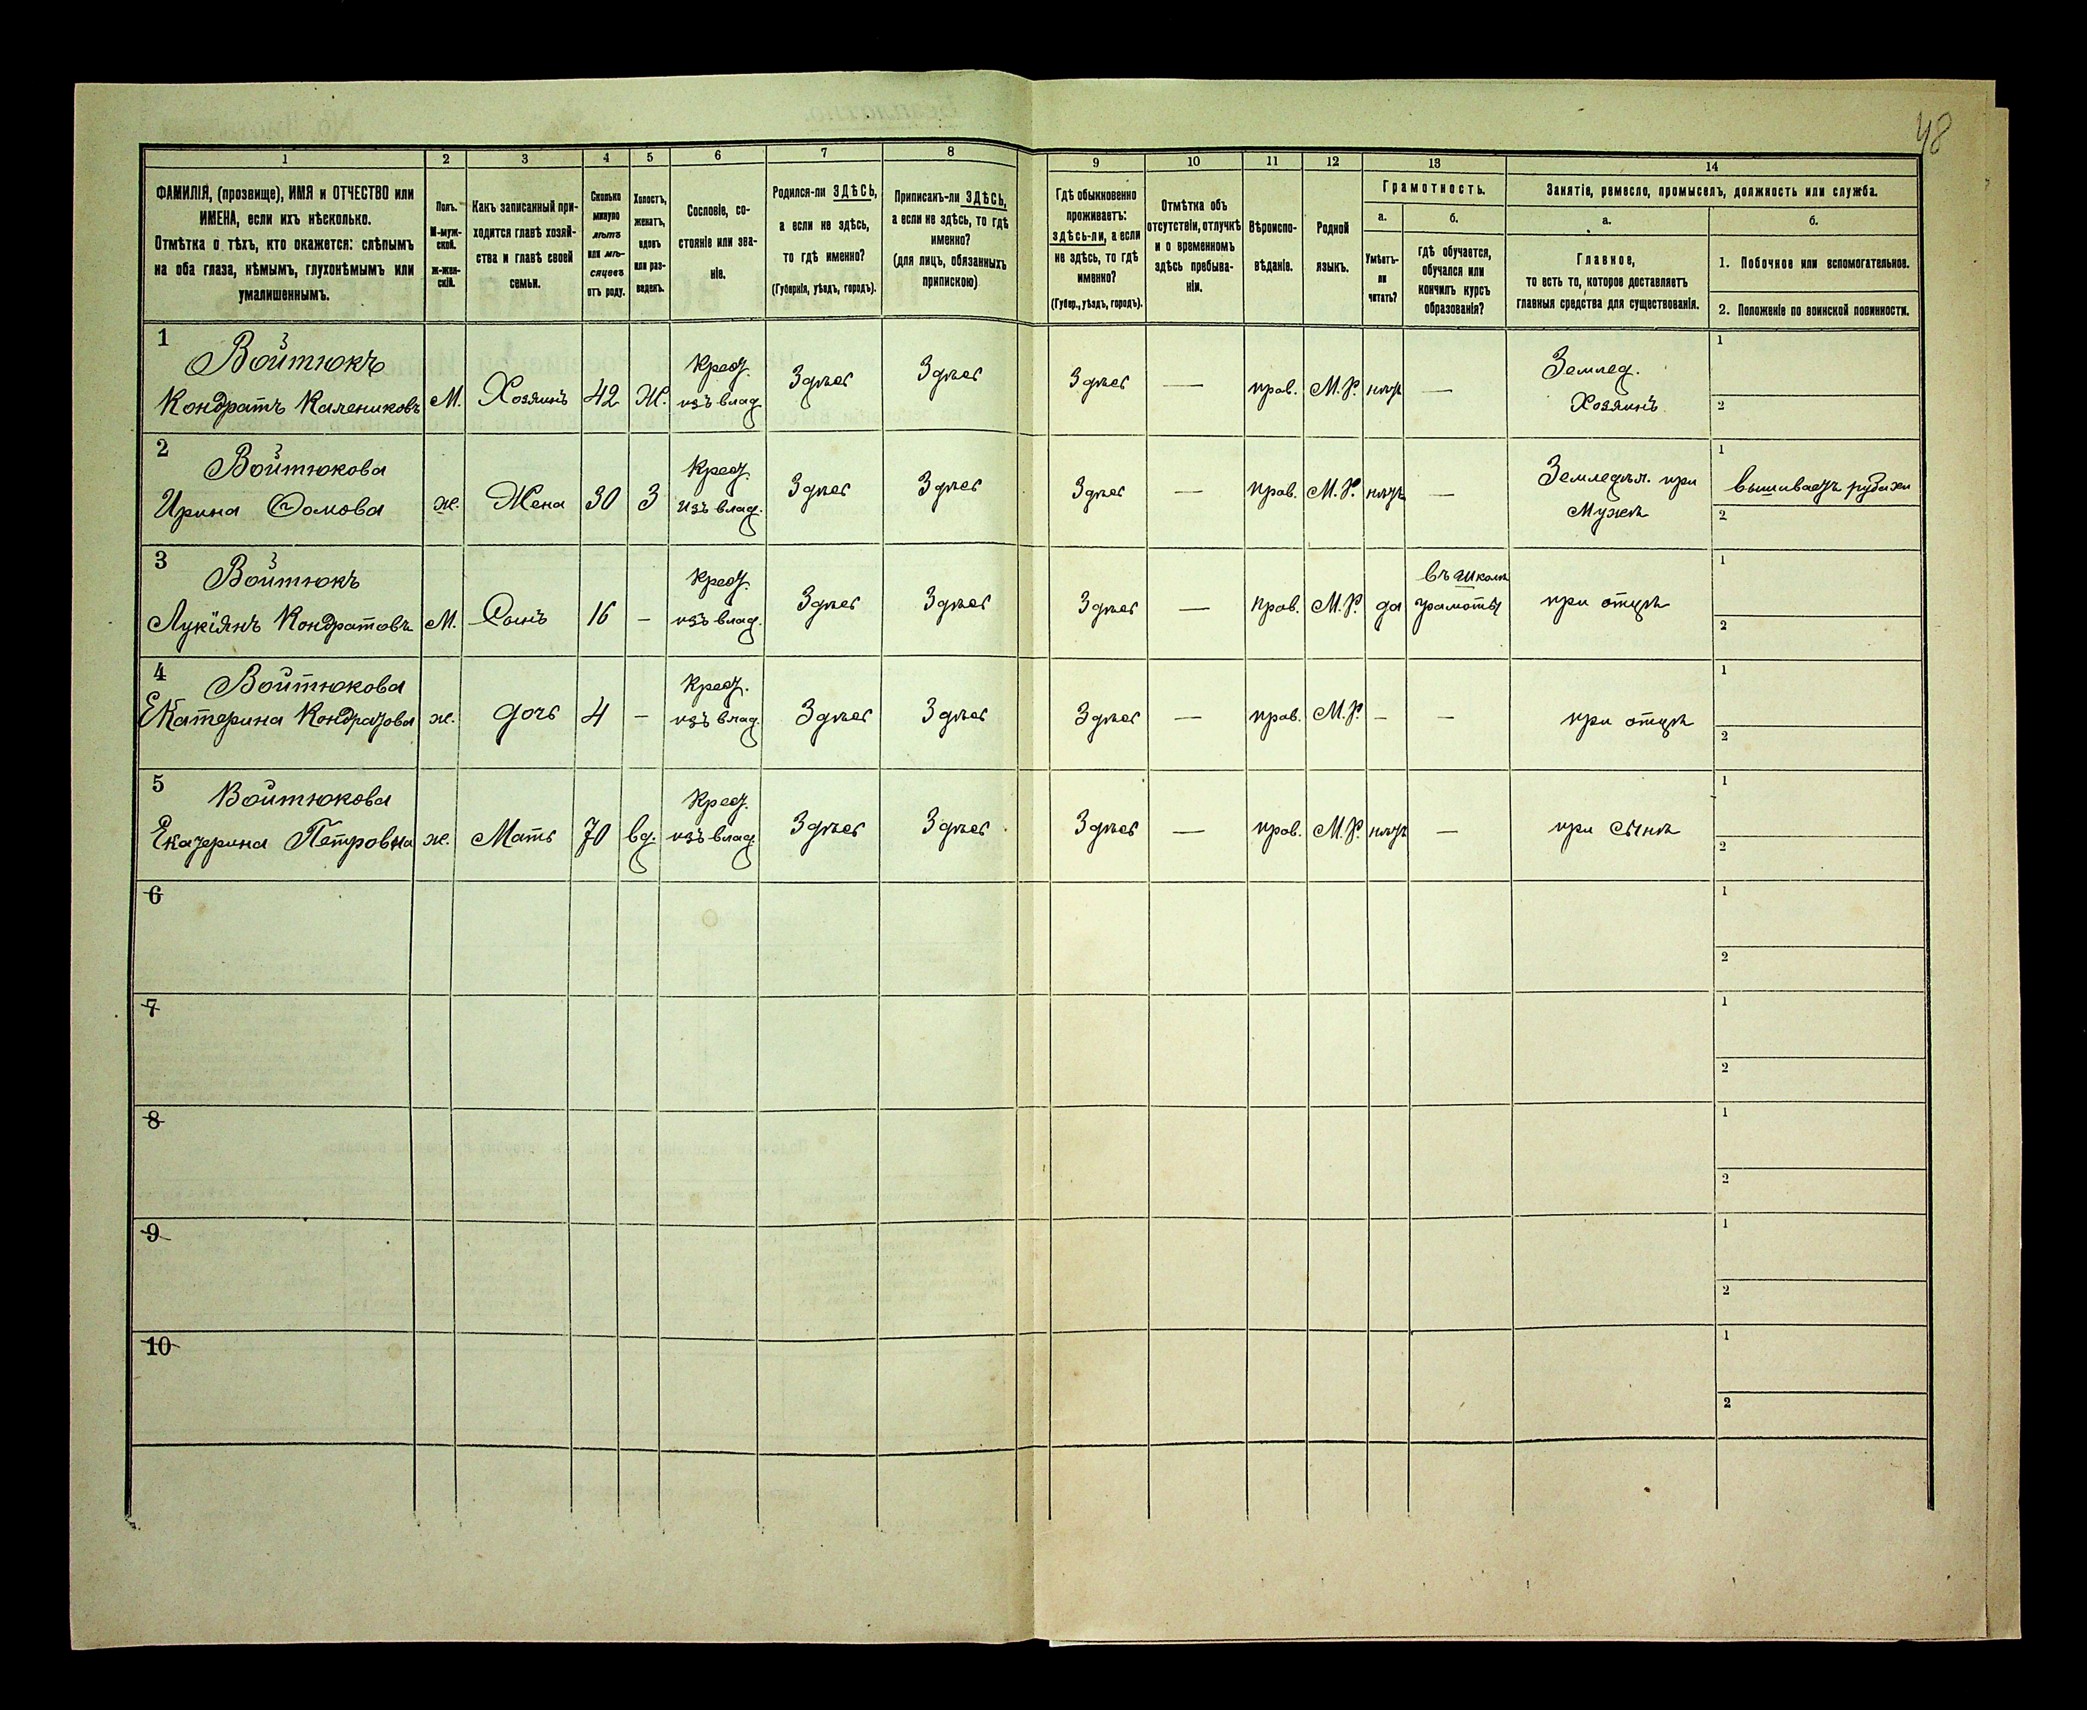 48
1 2 3 4 5 6 7 8 9 10 11 12 13 14
ФАМИЛІЯ, (прозвище), ИМЯ и ОТЧЕСТВО или
ИМЕНА, если ихъ нѣсколько.
Отмѣтка о тѣхъ, кто окажется: слѣпымъ
на оба глаза, нѣмымъ, глухонѣмымъ или
умалишеннымъ.
Полъ.
М-муж-
ской.
ж-жен-
скій.
Какъ записанный при-
ходится главѣ хозяй-
ства и главѣ своей
семьи.
Сколько
минуло
лѣтъ
или мѣ-
сяцевъ
отъ роду.
Холостъ,
женатъ,
вдовъ
или раз-
веденъ.
Сословіе, со-
стояніе или зва-
ніе.
Родился-ли ЗДѢСЬ,
а если не здѣсь,
то гдѣ именно?
(Губернія, уѣздъ, городъ).
Приписанъ-ли ЗДѢСЬ,
а если не здѣсь, то гдѣ
именно?
(для лицъ, обязанныхъ
припискою)
Гдѣ обыкновенно
проживаетъ:
здѣсь-ли, а если
не здѣсь, то гдѣ
именно?
(Губер., уѣздъ, городъ).
Отмѣтка объ
отсутствіи, отлучкѣ
и о временномъ
здѣсь пребыва-
ніи.
Вѣроиспо-
вѣданіе.
Родной
языкъ.
Грамотность.
а. б.
Умѣетъ-
ли
читать?
гдѣ обучается,
обучался или
кончилъ курсъ
образованія?
Занятіе, ремесло, промыселъ, должность или служба.
а. б.
Главное,
то есть то, которое доставляетъ
главныя средства для существованія.
1. Побочное или вспомогательное.
2. Положеніе по воинской повинности.
1 Войтюкъ Крес. Землед. 1
Кондратъ Калениковъ М. Хозяинъ 42 Ж. изъ влад. Здѣсь Здѣсь Здѣсь — прав. М.Р. нѣтъ — Хозяинъ 2
2 Войтюкова Крес. Земледѣл. при 1 вышиваетъ рубахи
Ирина Фомова ж. Жена 30 З изъ влад. Здѣсь Здѣсь Здѣсь — прав. М.Р. нѣтъ — Мужѣ 2
3 Войтюкъ Крес. въ школѣ 1
Лукіянъ Кондратовъ М. Сынъ 16 – изъ влад. Здѣсь Здѣсь Здѣсь — прав. М.Р. да грамоты при отцѣ 2
4 Войтюкова Крес. 1
Екатерина Кондратова ж. дочь 4 – изъ влад. Здѣсь Здѣсь Здѣсь — прав. М.Р. – – при отцѣ 2
5 Войтюкова Крес. 1
Екатерина Петровна ж. Мать 70 вд. изъ влад. Здѣсь Здѣсь Здѣсь — прав. М.Р. нѣтъ — при сынѣ 2
6 1
2
7 1
2
8 1
2
9 1
2
10 1
2